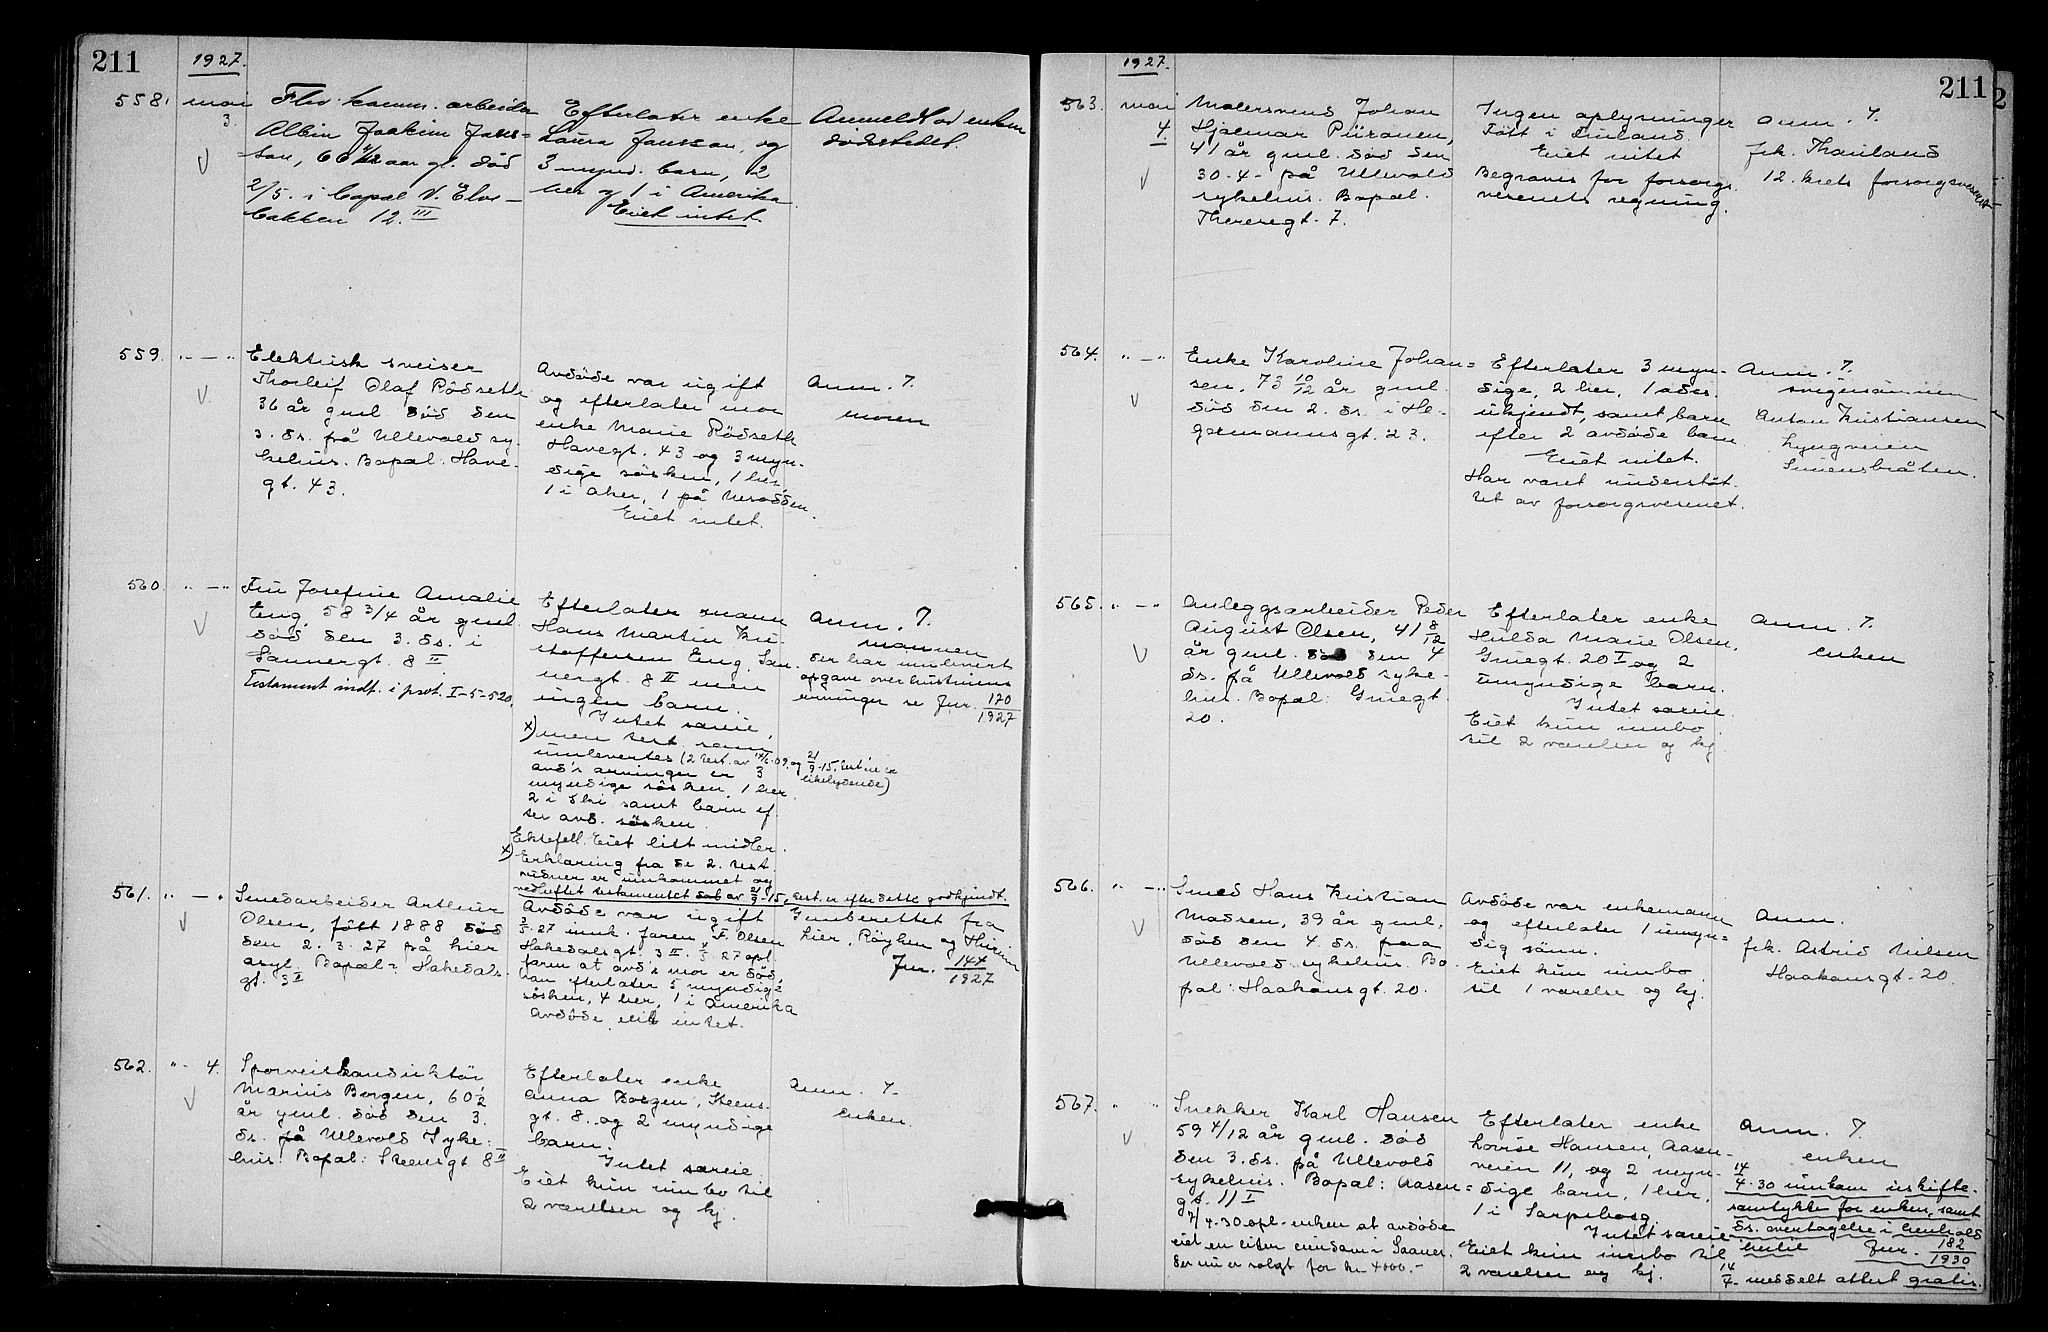 211
1927.
558. mai 3.
Flv. komm. arbeider
Albin Joakim Jans-
son, 66 aar gl. död
2/5. i bopæl N. Elve-
bakken 12. III
Efterlater enke
Laura Jansson, og
3 mynd. barn, 2
her og 1 i Amerika.
Eiet intet.
Anmeldt av enken
dödsfaldet.
559. " — "
Elektrisk sveiser
Thorleif Olaf Rödseth
36 år gml död den
3. ds. på Ullevold sy-
kehus. Bopæl: Have-
gt. 43.
Avdöde var ugift
og efterlater mor
enke Marie Rödseth
Havegt. 43 og 3 myn-
dige sösken, 1 her
1 i Aker, 1 på Nesodden.
Eiet intet.
Anm. 7.
moren
560. " — "
Fru Josefine Amalie
Eng, 58 3/4 år gml.
död den 3. ds. i
Sannergt. 8 II
Testament indt. i prot. I-5-520.
Efterlater mann
Hans Martin Kri-
stoffersen Eng, San-
nergt. 8 II men
ingen barn.
Intet særeie,
x) men test. som
innlevertes (2 test. av 09. og 21/9-15. test. er
likelydende)
avd's arvinger er 3
myndige sösken, 1 her
2 i Ski samt barn ef-
ter avd. sösken.
Ektefell. Eiet litt midler.
x) Erklæring fra de 2. test.
vidner er innkommet og
vedheftet testamentet dat av 21/9-15, test. er efter dette godkjendt.
Anm. 7.
mannen
der har innlevert
opgave over hustruens
arvinger se Jnr. 120/1927
561. " — "
Smedarbeider Arthur
Olsen, född 1888 död
den 2. 3. 27 på hier
asyl. Bopæl: Hakedals-
gt. 3 II
Avdöde var ugift
3/5. 27 innk. faren F. Olsen
Hakedalsgt. 3 II. 27 opl.
faren at avd's mor er död,
han efterlater 5 myndige
sösken, 4 her, 1 i Amerika
Avdöde eiet intet.
Innberettet fra
hier, Röyken og Hurum
Jnr. 144/1927
562. " - 4.
Sporveiskonduktör
Marius Borgen, 60 1/2
år gml. död den 3.
ds. på Ullevold Syke-
hus. Bopæl: Steensgt 8 II
Efterlater enke
Anna Borgen, Steens-
gt. 8. og 2 myndige
barn.
Intet særeie.
Eiet kun innbo til
2 værelser og kj.
Anm. 7.
enken.
211
1927.
563. mai 4.
Malersvend Johan
Hjalmar Piiranen,
41 år gml. död den
30-4- på Ullevold
sykehus. Bopæl.
Theresegt. 7.
Ingen oplysninger
Född i Finland.
Eiet intet
Begraves for forsorgs-
vesenets regning.
Anm. 7.
frk. Thauland
12. krets forsorgsvesenet
564. " — "
Enke Karoline Johan-
sen, 73 10/12 år gml.
död den 2. ds. i He-
germannsgt. 23.
Efterlater 3 myn-
dige, 2 her, 1 adr.
ukjendt, samt barn
efter 2 avdöde barn
Eiet intet.
Har været understöt-
tet av forsorgsvesenet.
Anm. 7.
svigersönnen
Anton Kristiansen
Lyngveien
Simensbråten.
565. " — "
Anleggsarbeider Peder
August Olsen, 41 8/12
år gml. död den 4
ds. på Ullevold syke-
hus. Bopæl: Gruegt.
20.
Efterlater enke
Hulda Marie Olsen,
Gruegt. 20 I og 2
umyndige barn.
Intet særeie.
Eiet kun innbo
til 2 værelser og kj.
Anm. 7.
enken
566. " — "
Smed Hans Kristian
Madsen, 39 år gml,
död den 4. ds. paa
Ullevold sykehus. Bo-
pæl: Haakonsgt. 20.
Avdöde var enkemann
og efterlater 1 umyn-
dig sönn.
Eiet kun innbo
til 1 værelse og kj.
Anm.
frk. Astrid Nilsen
Haakonsgt. 20.
567. " "
Snekker Karl Hansen
59 4/12 år gml. död
den 3. ds. på Ullevold
sykehus. Bopæl: Aasen-
gt. 11 I
7/4-30 opl. enken at avdöde
eiet en liten eiendom i Saaner.
der nu er solgt for kr 4000.-
Efterlater enke
Lovise Hansen, Aasen-
veien 11, og 2 myn-
dige barn, 1 her,
1 i Sarpsborg
Intet særeie.
Eiet kun innbo til
2 værelser og kj.
Anm. 7.
enken
14/4-30 innkom uskifte-
samtykke for enken, samt
ds. overtagelse i henhold
hertil Jnr. 182/1930
14/7 meddelt attest gratis.